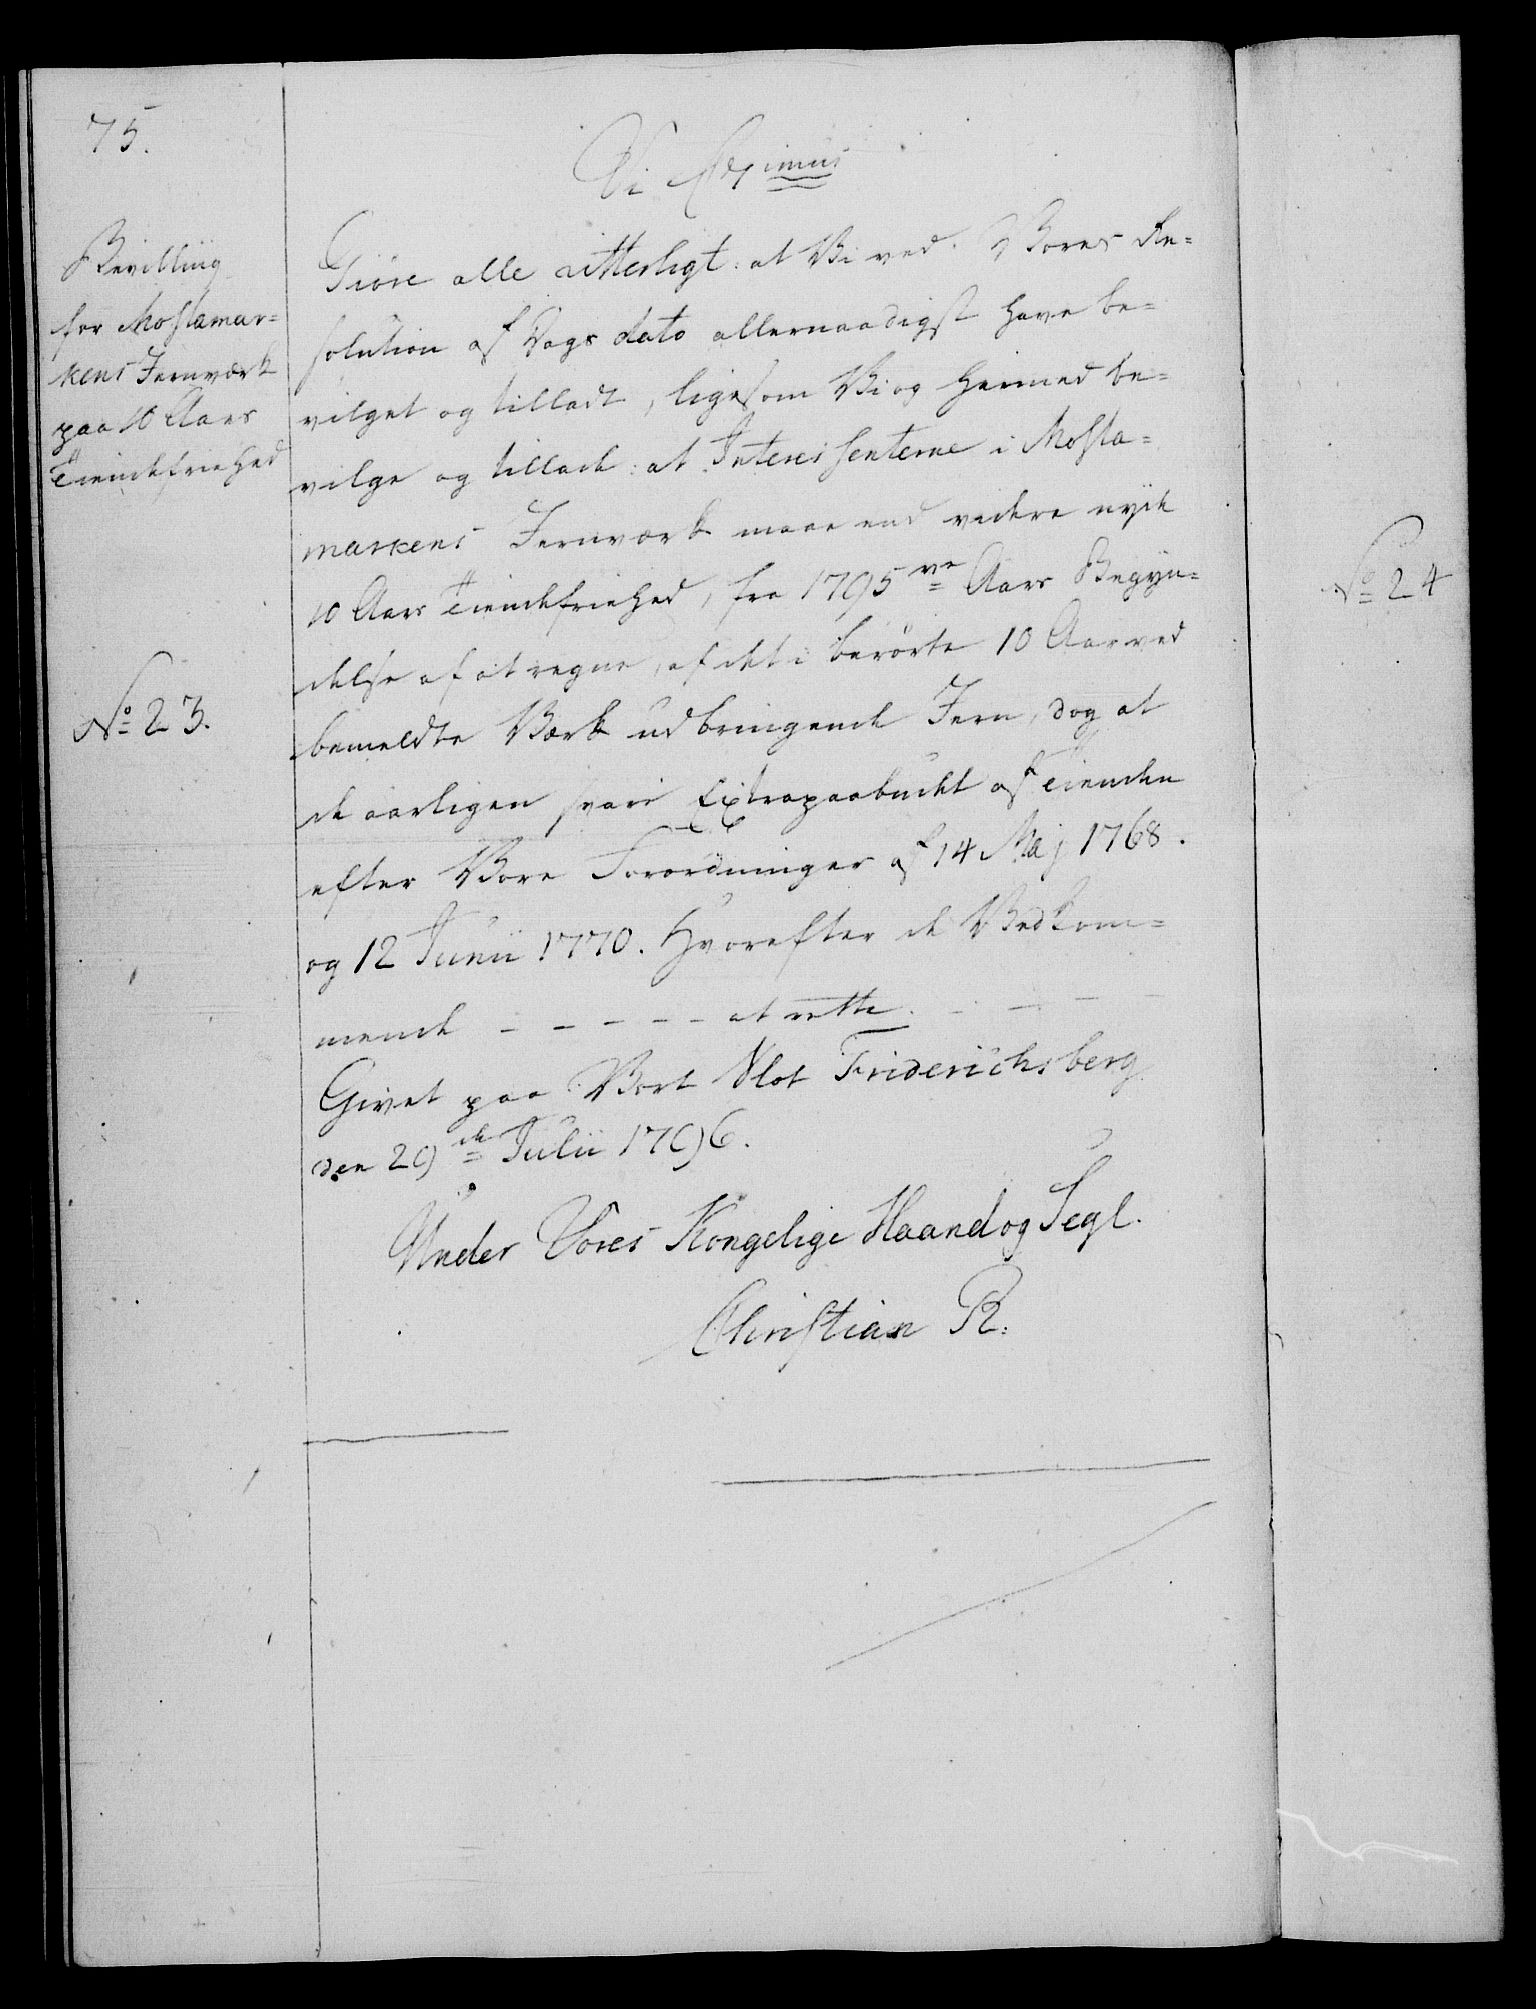 75.
Vi Chrſ Septimus
Bevilling
for Mostamar=
kens Jernværk
paa 10 Aars
Tiendefriehed
No 23.
Giöre alle vitterligt: at Vi ved Vores Re=
solution af Dags dato allernaadigst have be=
vilget og tilladt, ligesom Vi og hermed be=
vilge og tillade: at Interessenterne i Mosta=
markens Jernværk maae end videre nyde
10 Aars Tiendefriehed, fra 1795 ve Aars Begyn=
delse af at regne, af det i berörte 10 Aar ved
bemeldte Værk udbringende Jern, dog at
de aarligen svare Extrapaabudet af Tienden
efter Vore Forordninger af 14 Maj 1768.
og 12 Junii 1770. Hvorefter de Vedkom=
mende - - - - - at rette. - - - -
Givet paa Vort Slot Friderichsberg
den 29 de Julii 1796.
Under Vores Kongelige Haand og Segl.
Christian R.
No 24